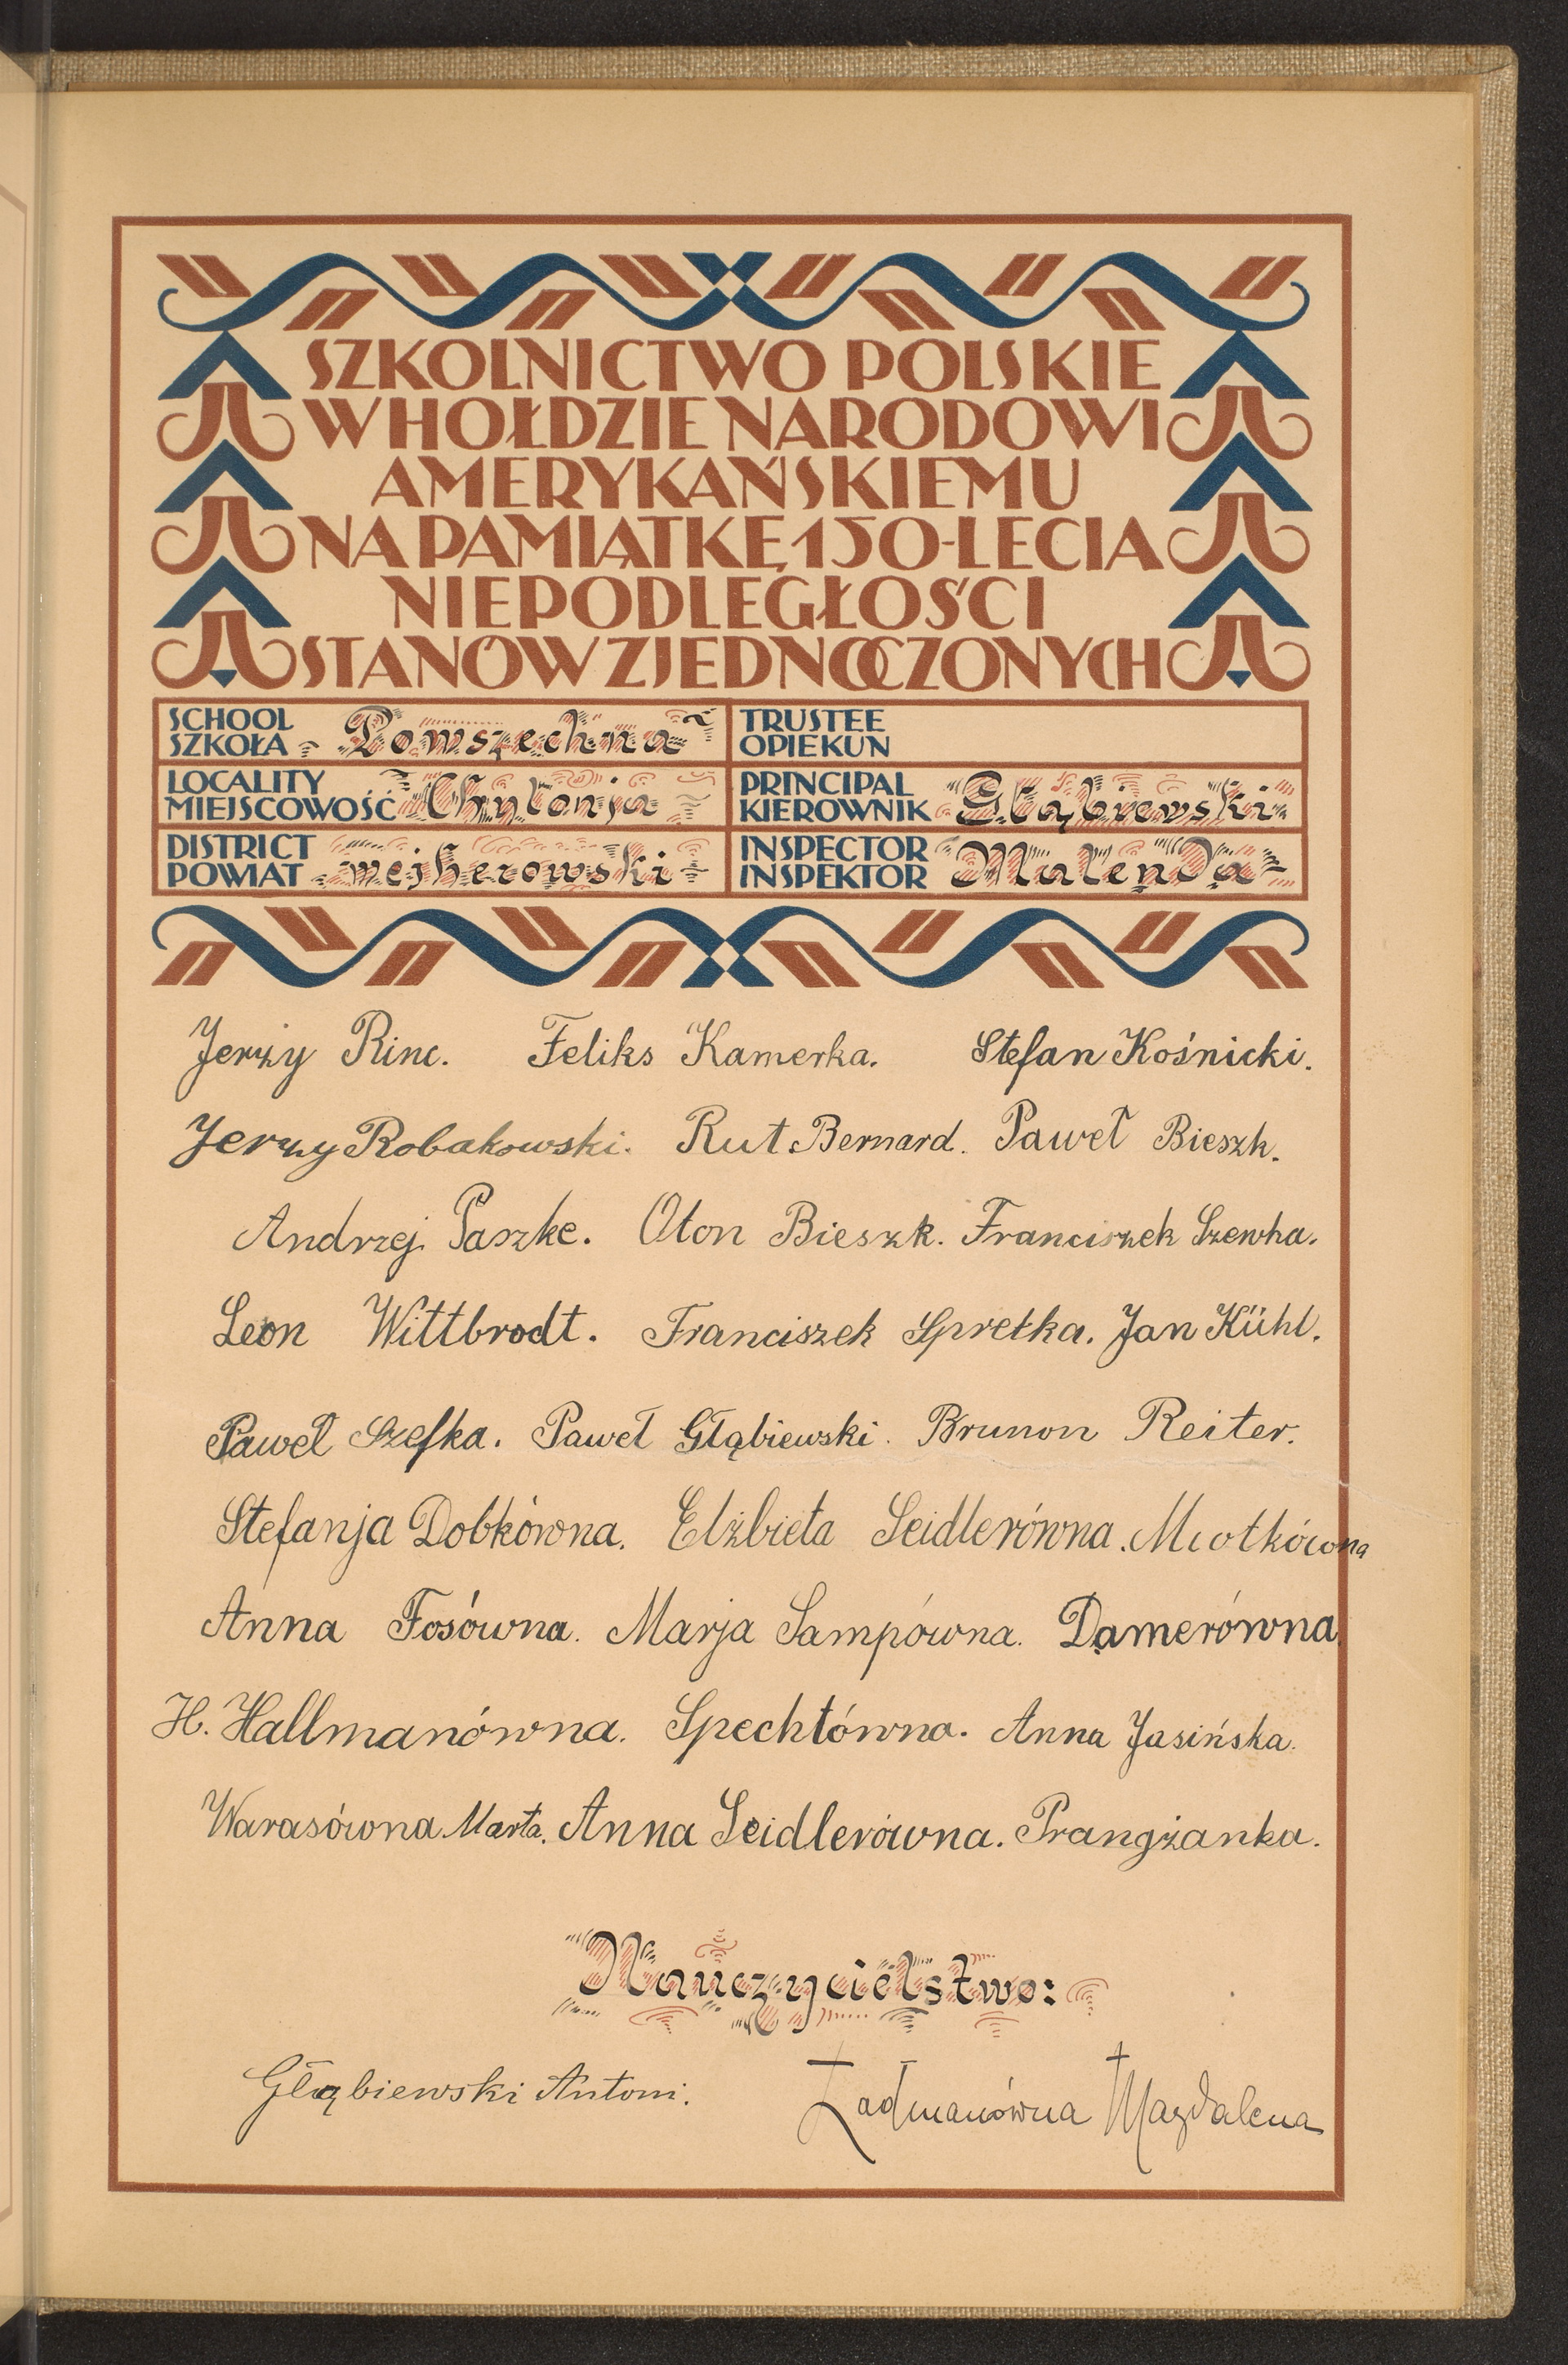 SZKOLNICTWO POLSKIE
W HOŁDZIE NARODOWI
AMERYKAŃSKIEMU
NA PAMIĄTKĘ 150-LECIA
NIEPODLEGŁOŚCI
STANÓW ZJEDNOCZONYCH
SCHOOL
SZKOŁA Powszechna
TRUSTEE
OPIEKUN
LOCALITY
MIEJSCOWOŚĆ Chylonja
PRINCIPAL
KIEROWNIK Głąbiewski
DISTRICT
POWIAT wejherowski
INSPECTOR
INSPEKTOR Malenda
Jerzy Rinc. Feliks Kamerka. Stefan Kośnicki.
Jerzy Robakowski. Rut Bernard. Paweł Bieszk.
Andrzej Paszke. Oton Bieszk. Franciszek Szewka.
Leon Wittbrodt. Franciszek Spretka. Jan Kühl.
Paweł Szefka. Paweł Głąbiewski. Brunon Reiter.
Stefanja Dobkówna. Elżbieta Seidlerówna. Miotkówna
Anna Fosówna. Marja Sampówna. Damerówna
H. Hallmanówna. Spechtówna. Anna Jasińska.
Warasówna Marta. Anna Seidlerówna. Prangżanka.
Nauczycielstwo:
Głąbiewski Antoni.
Magdalena